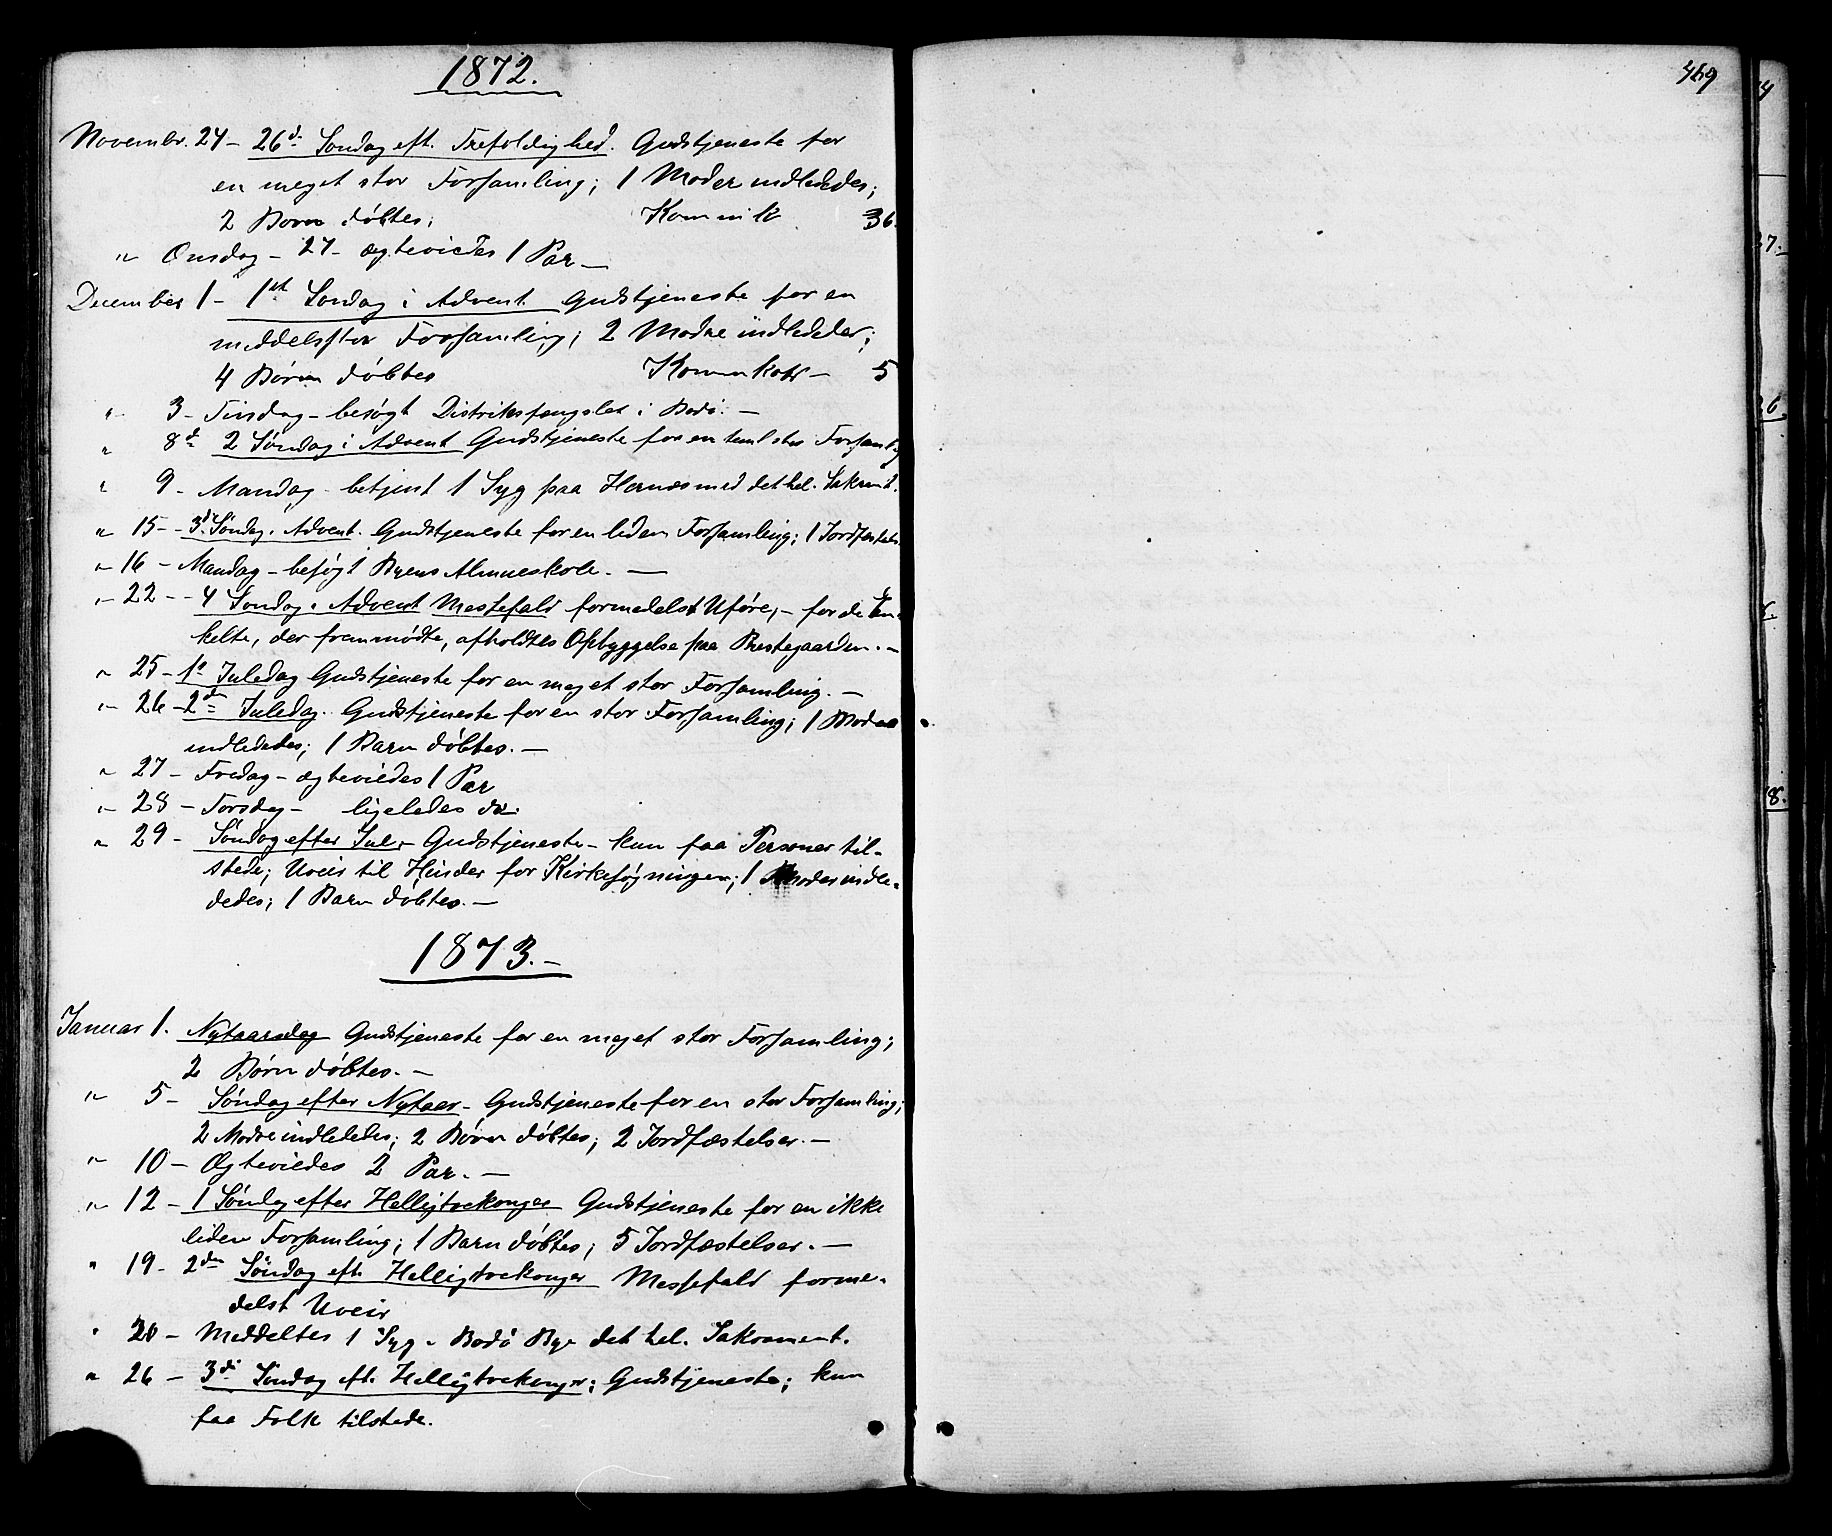 1872.
Novembr. 24 - 26d Søndag eft. Trefoldighed. Gudstjeneste for
en meget stor Forsamling; 1 Moder indlededes;
2 Børn døbtes; Kommik 36.
" Onsdag - 27 - ægteviedes 1 Par -
December 1 - 1st Søndag i Advent Gudstjeneste for en
middelsstor Forsamling; 2 Mødre indlededes;
4 Børn døbtes - 5
" 3 - Tirsdag - besøgt Distriksfængslet i Bodø. -
" 8d 2 Søndag i Advent Gudstjeneste for en teml stor Forsamlg
" 9 - Mandag - betjent 1 Syg paa Hernæs med det hel. Sakrmt.
" 15 - 3d Søndag i Advent. Gudstjeneste for en liden Forsamling; 1 Jordfæstels.
" 16 - Mandag - besøgt Byens Almueskole. -
" 22 - 4 Søndag i Advent Messefald formedelst Uføre, - for de En-
kelte, der fremmødte, afholdtes Opbyggelse paa Prestegaarden. -
" 25 - 1e Juledag Gudstjeneste for en meget stor Forsamling. -
" 26 - 2den Juledag. Gudstjeneste for en stor Forsamling; 1 Moder
indlededes; 1 Barn døbtes. -
" 27 - Fredag - ægteviedes 1 Par
" 28 - Torsdag - ligeledes do.
" 29 - Søndag efter Jul - Gudstjeneste - kun faa Personer til-
stede; Uveir til Hinder for Kirkesøgningen; 1 Moder indle-
dedes; 1 Barn døbtes. -
1873. -
Januar 1. Nytaarsdag Gudstjeneste for en meget stor Forsamling;
2 Børn døbtes. -
" 5 - Søndag efter Nytaar - Gudstjeneste for en stor Forsamling;
2 Mødre indlededes; 2 Børn døbtes; 2 Jordfæstelser. -
" 10 - Ægteviedes 2 Par. -
" 12 - 1 Søndag efter Helligtrekonger Gudstjeneste for en ikke
liden Forsamling; 1 Barn døbtes; 5 Jordfæstelser. -
" 19 - 2den Søndag eft. Helligtrekonger Messefald forme-
delst Uveir
" 20 - Meddeltes 1 Syg i Bodø Bye det hel. Sakrament.
" 26 - 3di Søndag eft. Helligtrekonger; Gudstjeneste; kun
faa Folk tilstede.
469
27.
26.
8.